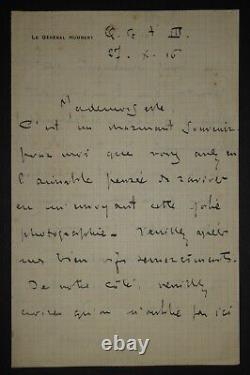 LE GÉNÉRAL HUMBERT
Q. G. A III.
27. X. 16
Mademoiselle
C'est un charmant souvenir
pour moi que vous avez eu
l'aimable pensée de raviver
en m'envoyant cette jolie
photographie. Veuillez agréer
mes bien vifs remerciements.
De notre côté, veuillez
croire qu'on n'oublie pas ici